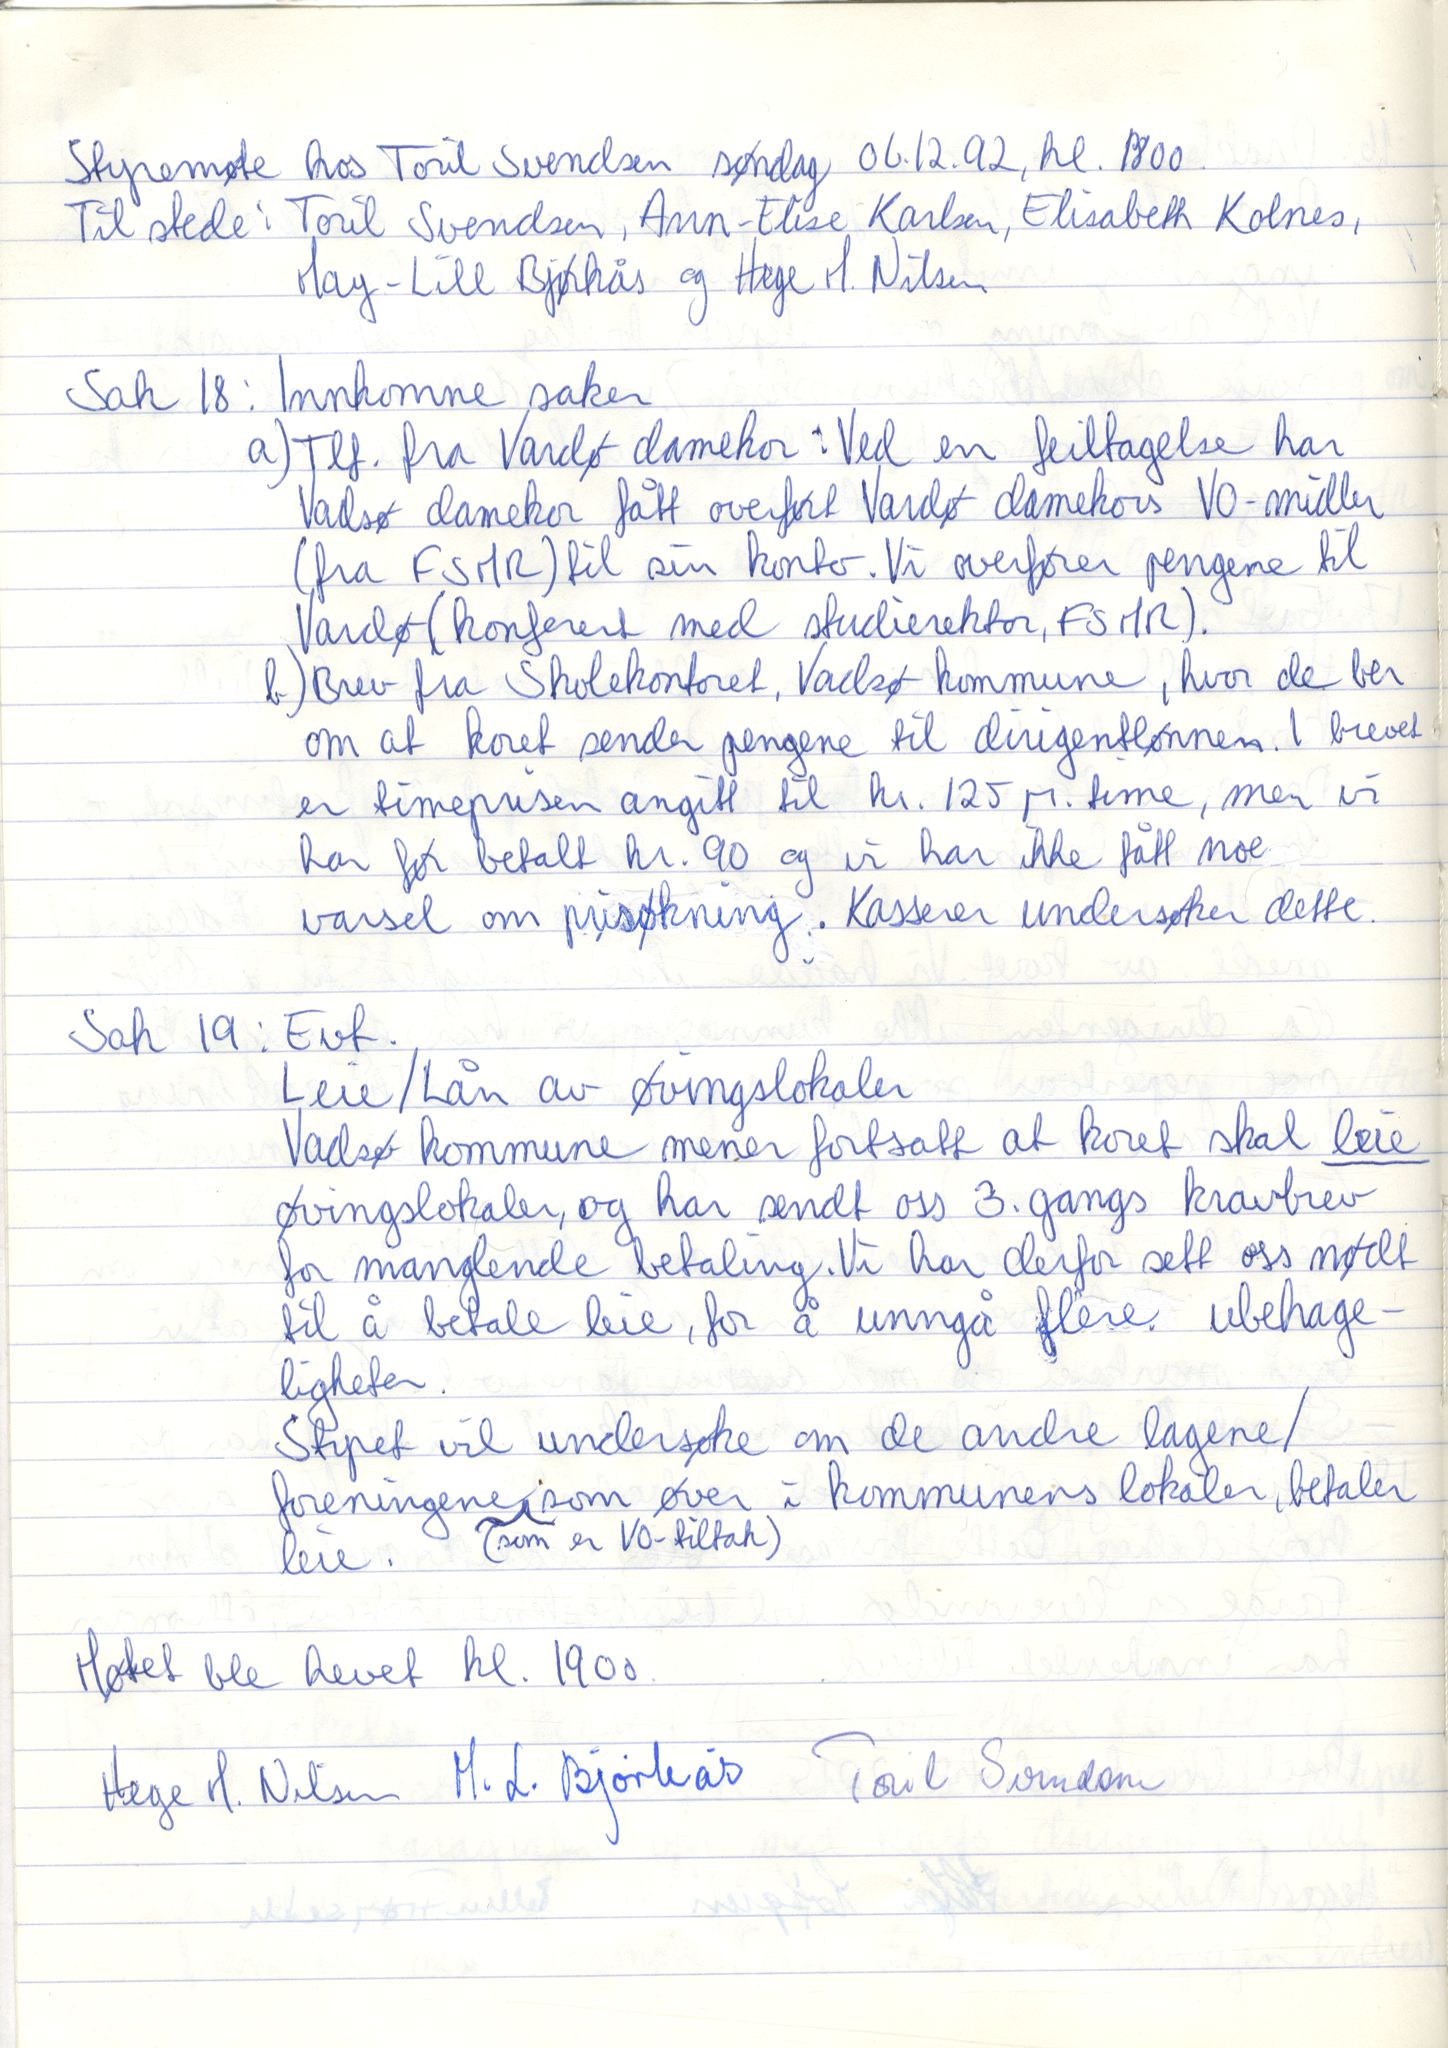 Styremøte hos Toril Svendsen søndag 06.12.92, kl. 1800.
Til stede: Toril Svendsen, Ann-Elise Karlsen, Elisabeth Kolnes,
May-Lill Bjørkås og Hege M. Nilsen
Sak 18: Innkomne saker
a) Tlf. fra Vardø damekor: Ved en feiltagelse har
Vadsø damekor fått overført Vardø damekors VO-midler
(fra FSMR) til sin konto. Vi overfører pengene til
Vardø (konferert med studierektor, FSMR).
b) Brev fra Skolekontoret, Vadsø kommune, hvor de ber
om at koret sender pengene til dirigentlønnen. I brevet
er timeprisen angitt til kr. 125 pr. time, men vi
har før betalt kr. 90 og vi har ikke fått noe
varsel om prisøkning. Kasserer undersøker dette.
Sak 19: Evt.
Leie/Lån av øvingslokaler
Vadsø kommune mener fortsatt at koret skal leie
øvingslokaler, og har sendt oss 3. gangs kravbrev
for manglende betaling. Vi har derfor sett oss nødt
til å betale leie, for å unngå flere ubehage-
ligheter.
Styret vil undersøke om de andre lagene/
foreningene, som øver i kommunens lokaler, betaler
leie. (som er VO-tiltak)
Møtet ble hevet kl. 1900.
Hege M. Nilsen M. L. Bjørkås Toril Svendsen